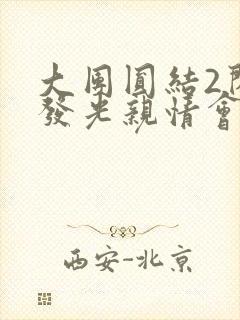 大團圓結2
發光親情會
西安-北京